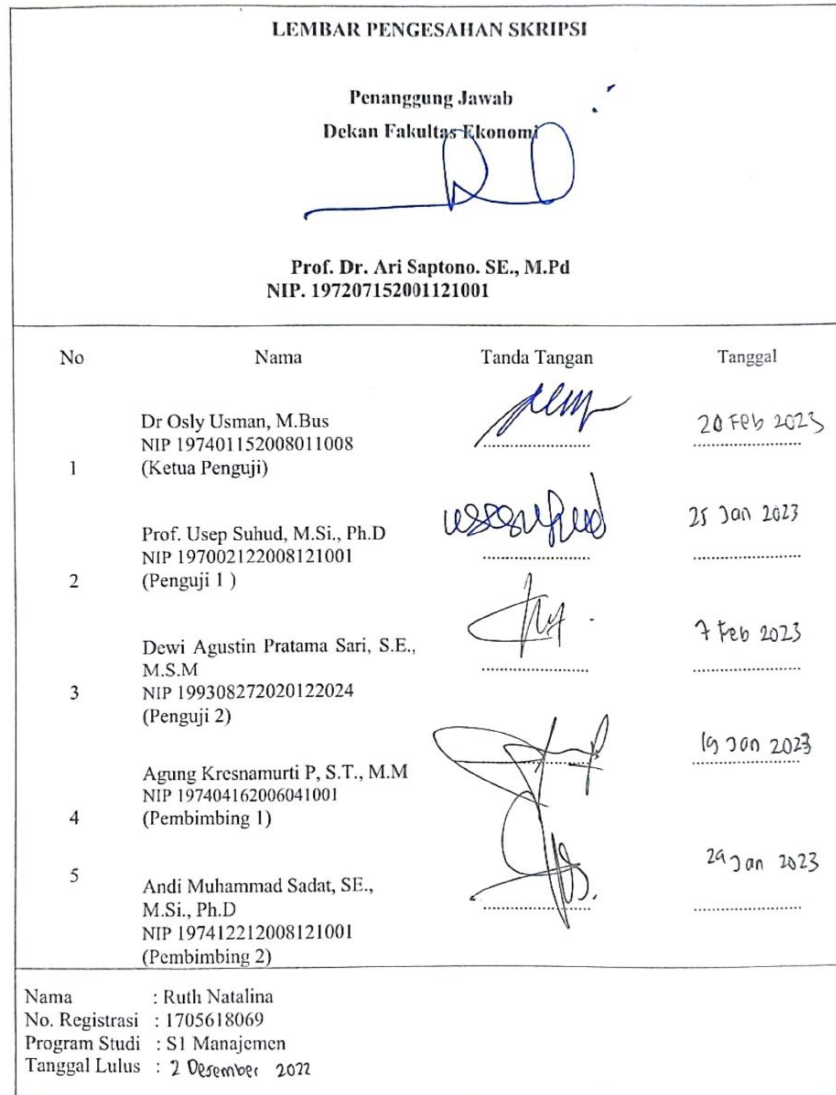 LEMBAR PENGESAHAN SKRIPSI
Penanggung Jawab
Dekan Fakultas Ekonomi
Prof. Dr. Ari Saptono. SE., M.Pd
NIP. 197207152001121001
No Nama Tanda Tangan Tanggal
Dr Osly Usman, M.Bus
NIP 197401152008011008
1 (Ketua Penguji)
20 Feb 2023
Prof. Usep Suhud, M.Si., Ph.D
NIP 197002122008121001
2 (Penguji 1 )
25 Jan 2023
Dewi Agustin Pratama Sari, S.E.,
M.S.M
3 NIP 199308272020122024
(Penguji 2)
7 Feb 2023
Agung Kresnamurti P, S.T., M.M
NIP 197404162006041001
4 (Pembimbing 1)
19 Jan 2023
5 Andi Muhammad Sadat, SE.,
M.Si., Ph.D
NIP 197412212008121001
(Pembimbing 2)
29 Jan 2023
Nama : Ruth Natalina
No. Registrasi : 1705618069
Program Studi : S1 Manajemen
Tanggal Lulus : 2 Desember 2022